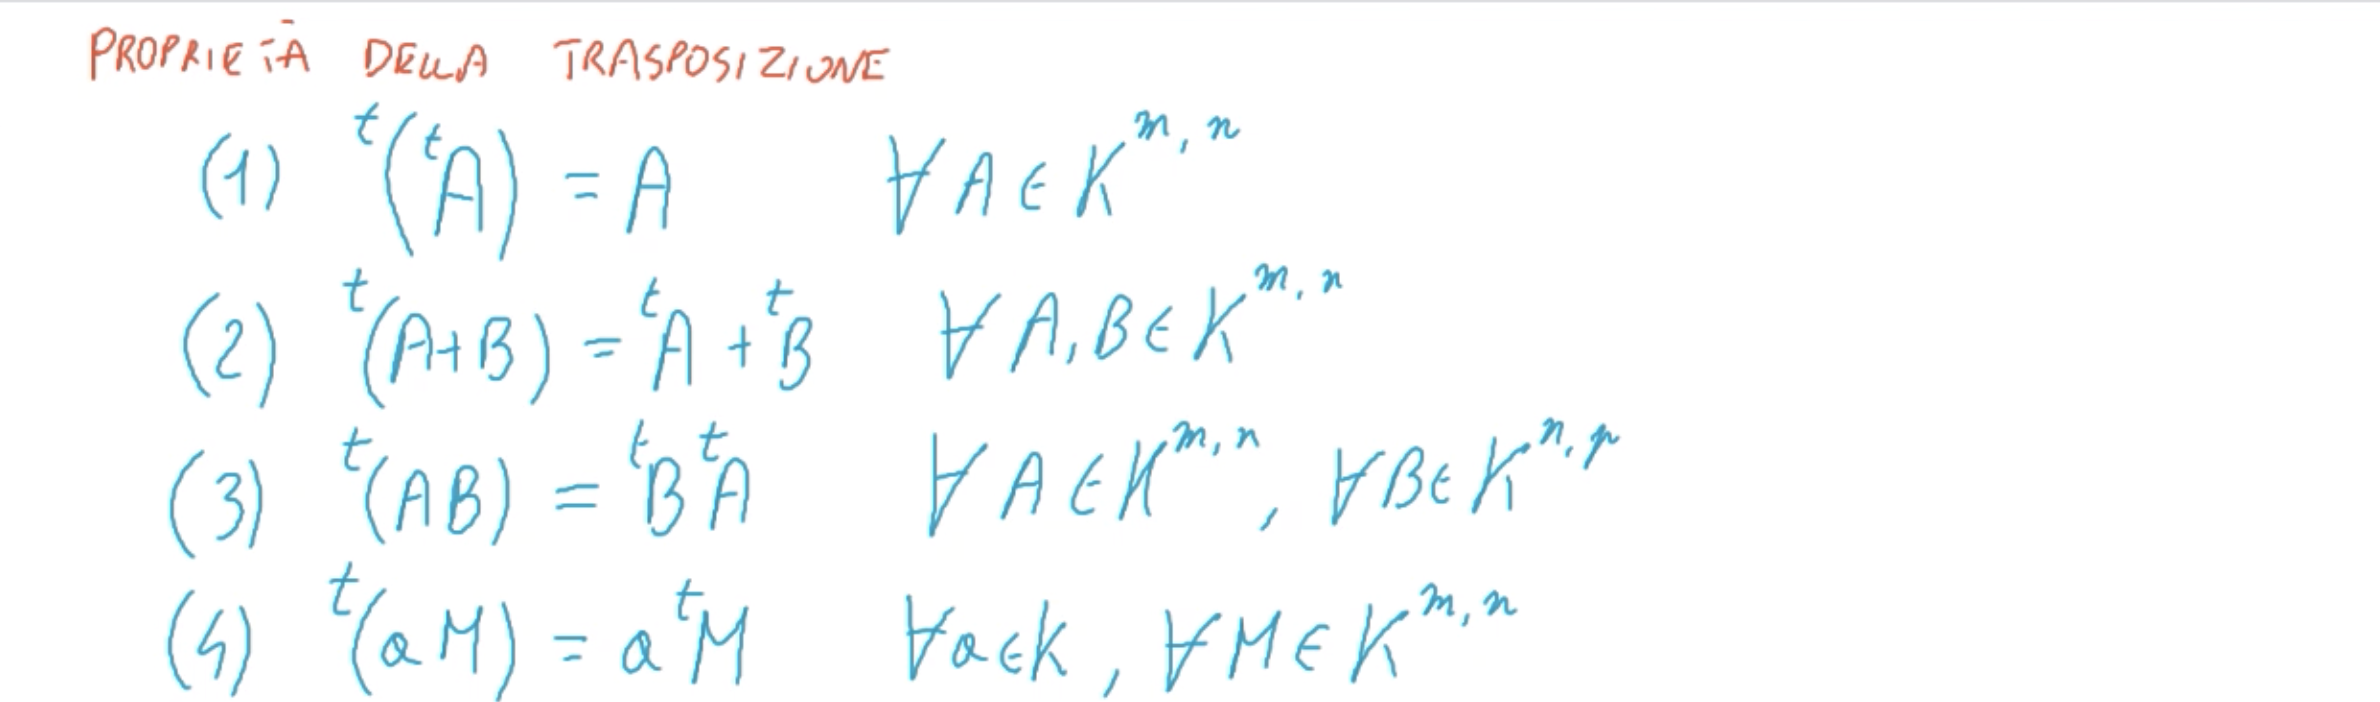 PROPRIETÀ DELLA TRASPOSIZIONE
(1) ᵗ(ᵗA) = A ∀ A ∈ K^{m,n}
(2) ᵗ(A+B) = ᵗA + ᵗB ∀ A,B ∈ K^{m,n}
(3) ᵗ(AB) = ᵗB ᵗA ∀ A ∈ K^{m,n}, ∀ B ∈ K^{n,p}
(4) ᵗ(aM) = a ᵗM ∀ a ∈ K, ∀ M ∈ K^{m,n}